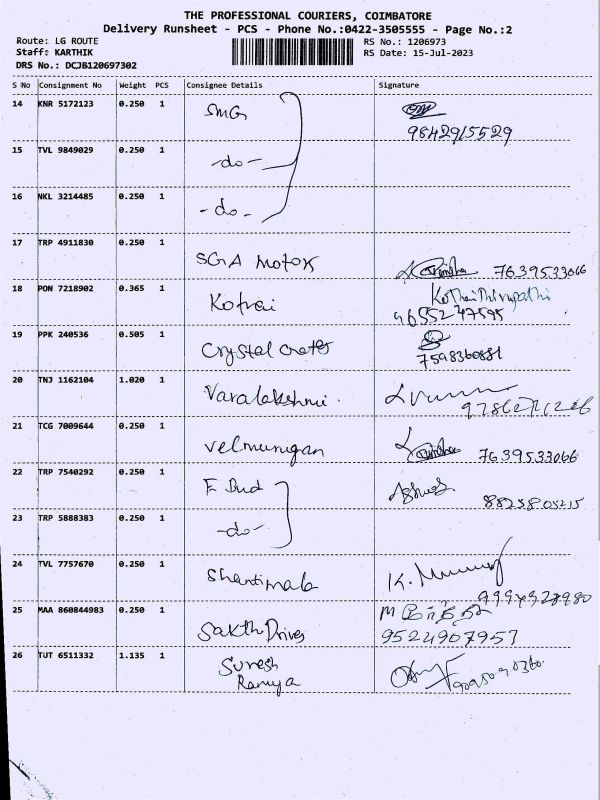 THE PROFESSIONAL COURIERS, COIMBATORE
Delivery Runsheet - PCS - Phone No.:0422-3505555 - Page No.:2
Route: LG ROUTE RS No.: 1206973
Staff: KARTHIK RS Date: 15-Jul-2023
DRS No.: DCJB120697302
S No Consignment No Weight PCS Consignee Details Signature
14 KNR 5172123 0.250 1 SMG
9842915529
15 TVL 9849029 0.250 1 -do-
16 NKL 3214485 0.250 1 -do-
17 TRP 4911830 0.250 1 SGA Motors 7639533066
18 PON 7218902 0.365 1 Kotrai Kothai Thirupathi
9655247595
19 PPK 240536 0.505 1 Crystal crates
7598360881
20 TNJ 1162104 1.020 1 Varalakshmi.
21 TCG 7009644 0.250 1 velmurugan 7639533066
22 TRP 7540292 0.250 1
8825805215
23 TRP 5888383 0.250 1 -do-
24 TVL 7757670 0.250 1 Shantimala K.
25 MAA 860844983 0.250 1 Sakthi Drives M
9524907957
26 TUT 6511332 1.135 1 Suresh
Ramya